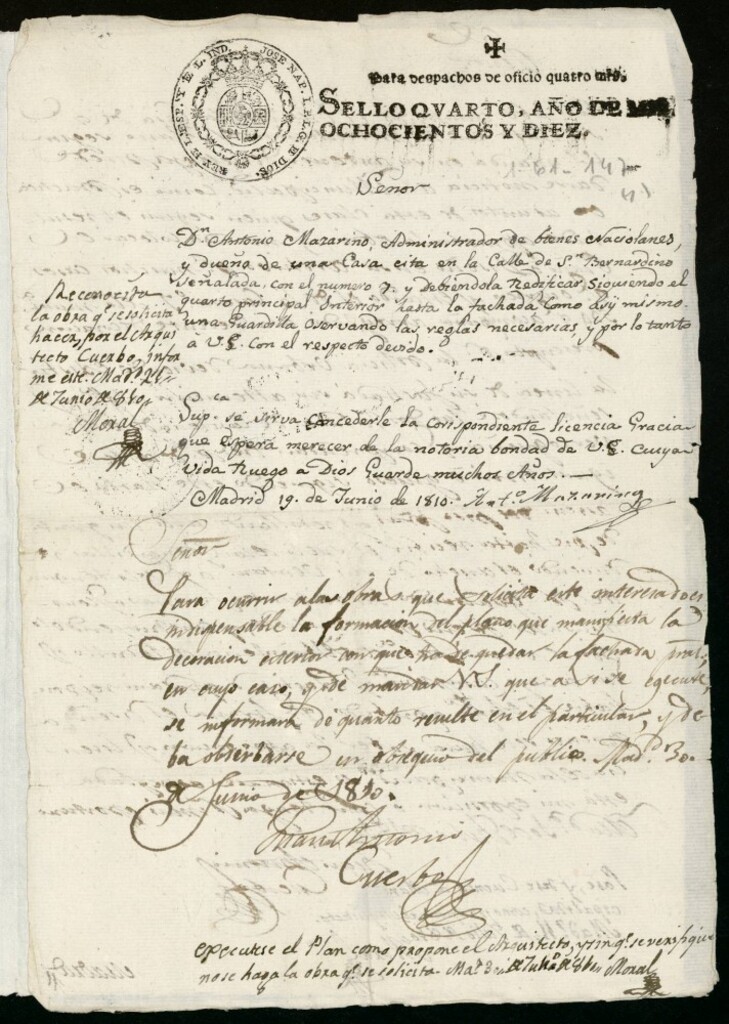 JOSE NAP. I. P. L. G. D. DIOS, REY D. L. ESP. Y D. L. IND.
Para despachos de oficio quatro mrs.
SELLO QVARTO, AÑO DE MIL
OCHOCIENTOS Y DIEZ.
1-61-147
Señor
Dn. Antonio Mazarino, Administrador de bienes Naciolanes,
y dueño de una Casa cita en la Calle de Sn. Bernardino
señalada, con el numero 7. y debiendola Redificar Siguiendo el
quarto principal Interior hasta la fachada como asy mismo
una Guardilla oservando las reglas necesarias, y por lo tanto
a V.E. con el respecto devido.
Supca. se sirva concederle la corispondiente licencia Gracia
que espera merecer de la notoria bondad de V.E. Cuya
vida Ruego a Dios Guarde muchos Años.
Madrid 19. de Junio de 1810. Anto. Mazarino
Reconozca
la obra qe. se solicita
hacer, por el Arqui
tecto Cuerbo, infor
me este. Madd. 21
de Junio de 810.
Moral
Señor
Para ocurrir a la obra que solicita este interesado es
indispensable la formacion del plano que manifiesta la
decoracion exterior con que ha de quedar la fachada
en cuyo caso, y de mandar V.S. que asi se egecute,
se informará de quanto resulte en el particular, y de
ba obserbarse en obsequio del publico. Madd. 30.
de Junio de 1810.
Juan Antonio
Cuerbo
executese el Plan como propone el Arquitecto, y sin qe. se verifique
no se haga la obra qe. se solicita. Madd. 30 de Junio de 810 Moral